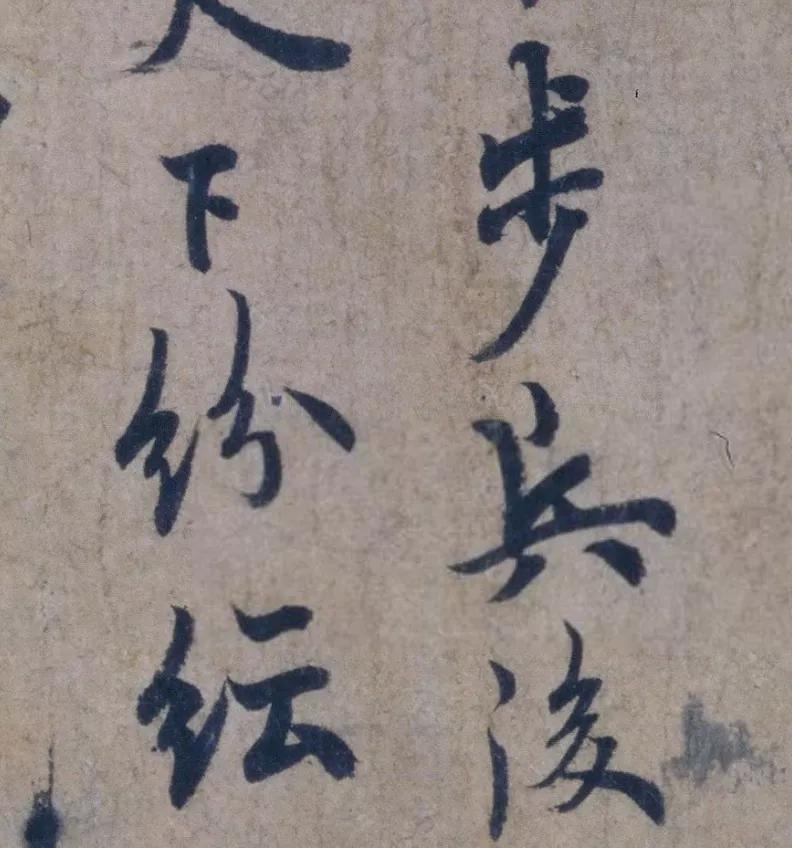 步兵後
天下紛紜